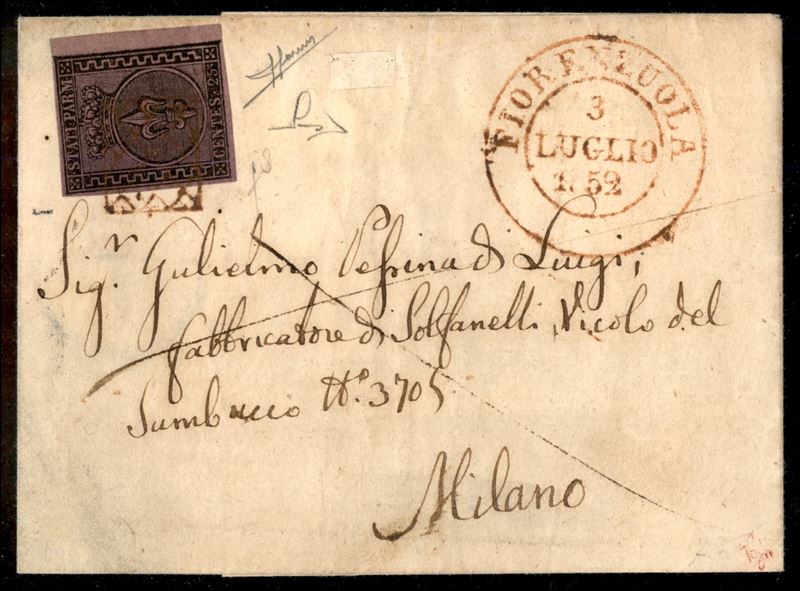 STATI PARM.
CENTES. 25
FIORENZUOLA
3
LUGLIO
1852
Sig.r Gulielmo Pessina di Luigi,
Fabbricatore di Solfanelli, Vicolo del
Sambucco N.° 3705
Milano